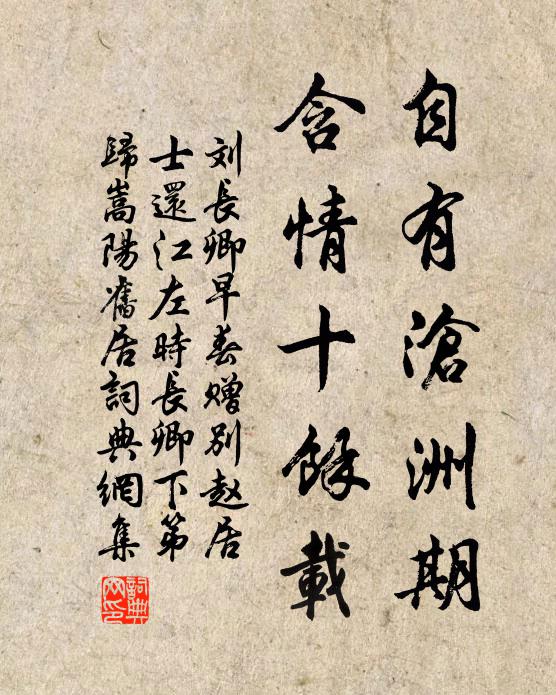 自有滄洲期
含情十餘載
刘長卿早春贈别赵居
士還江左時長卿下第
歸嵩陽舊居詞典網集
詞典
网印